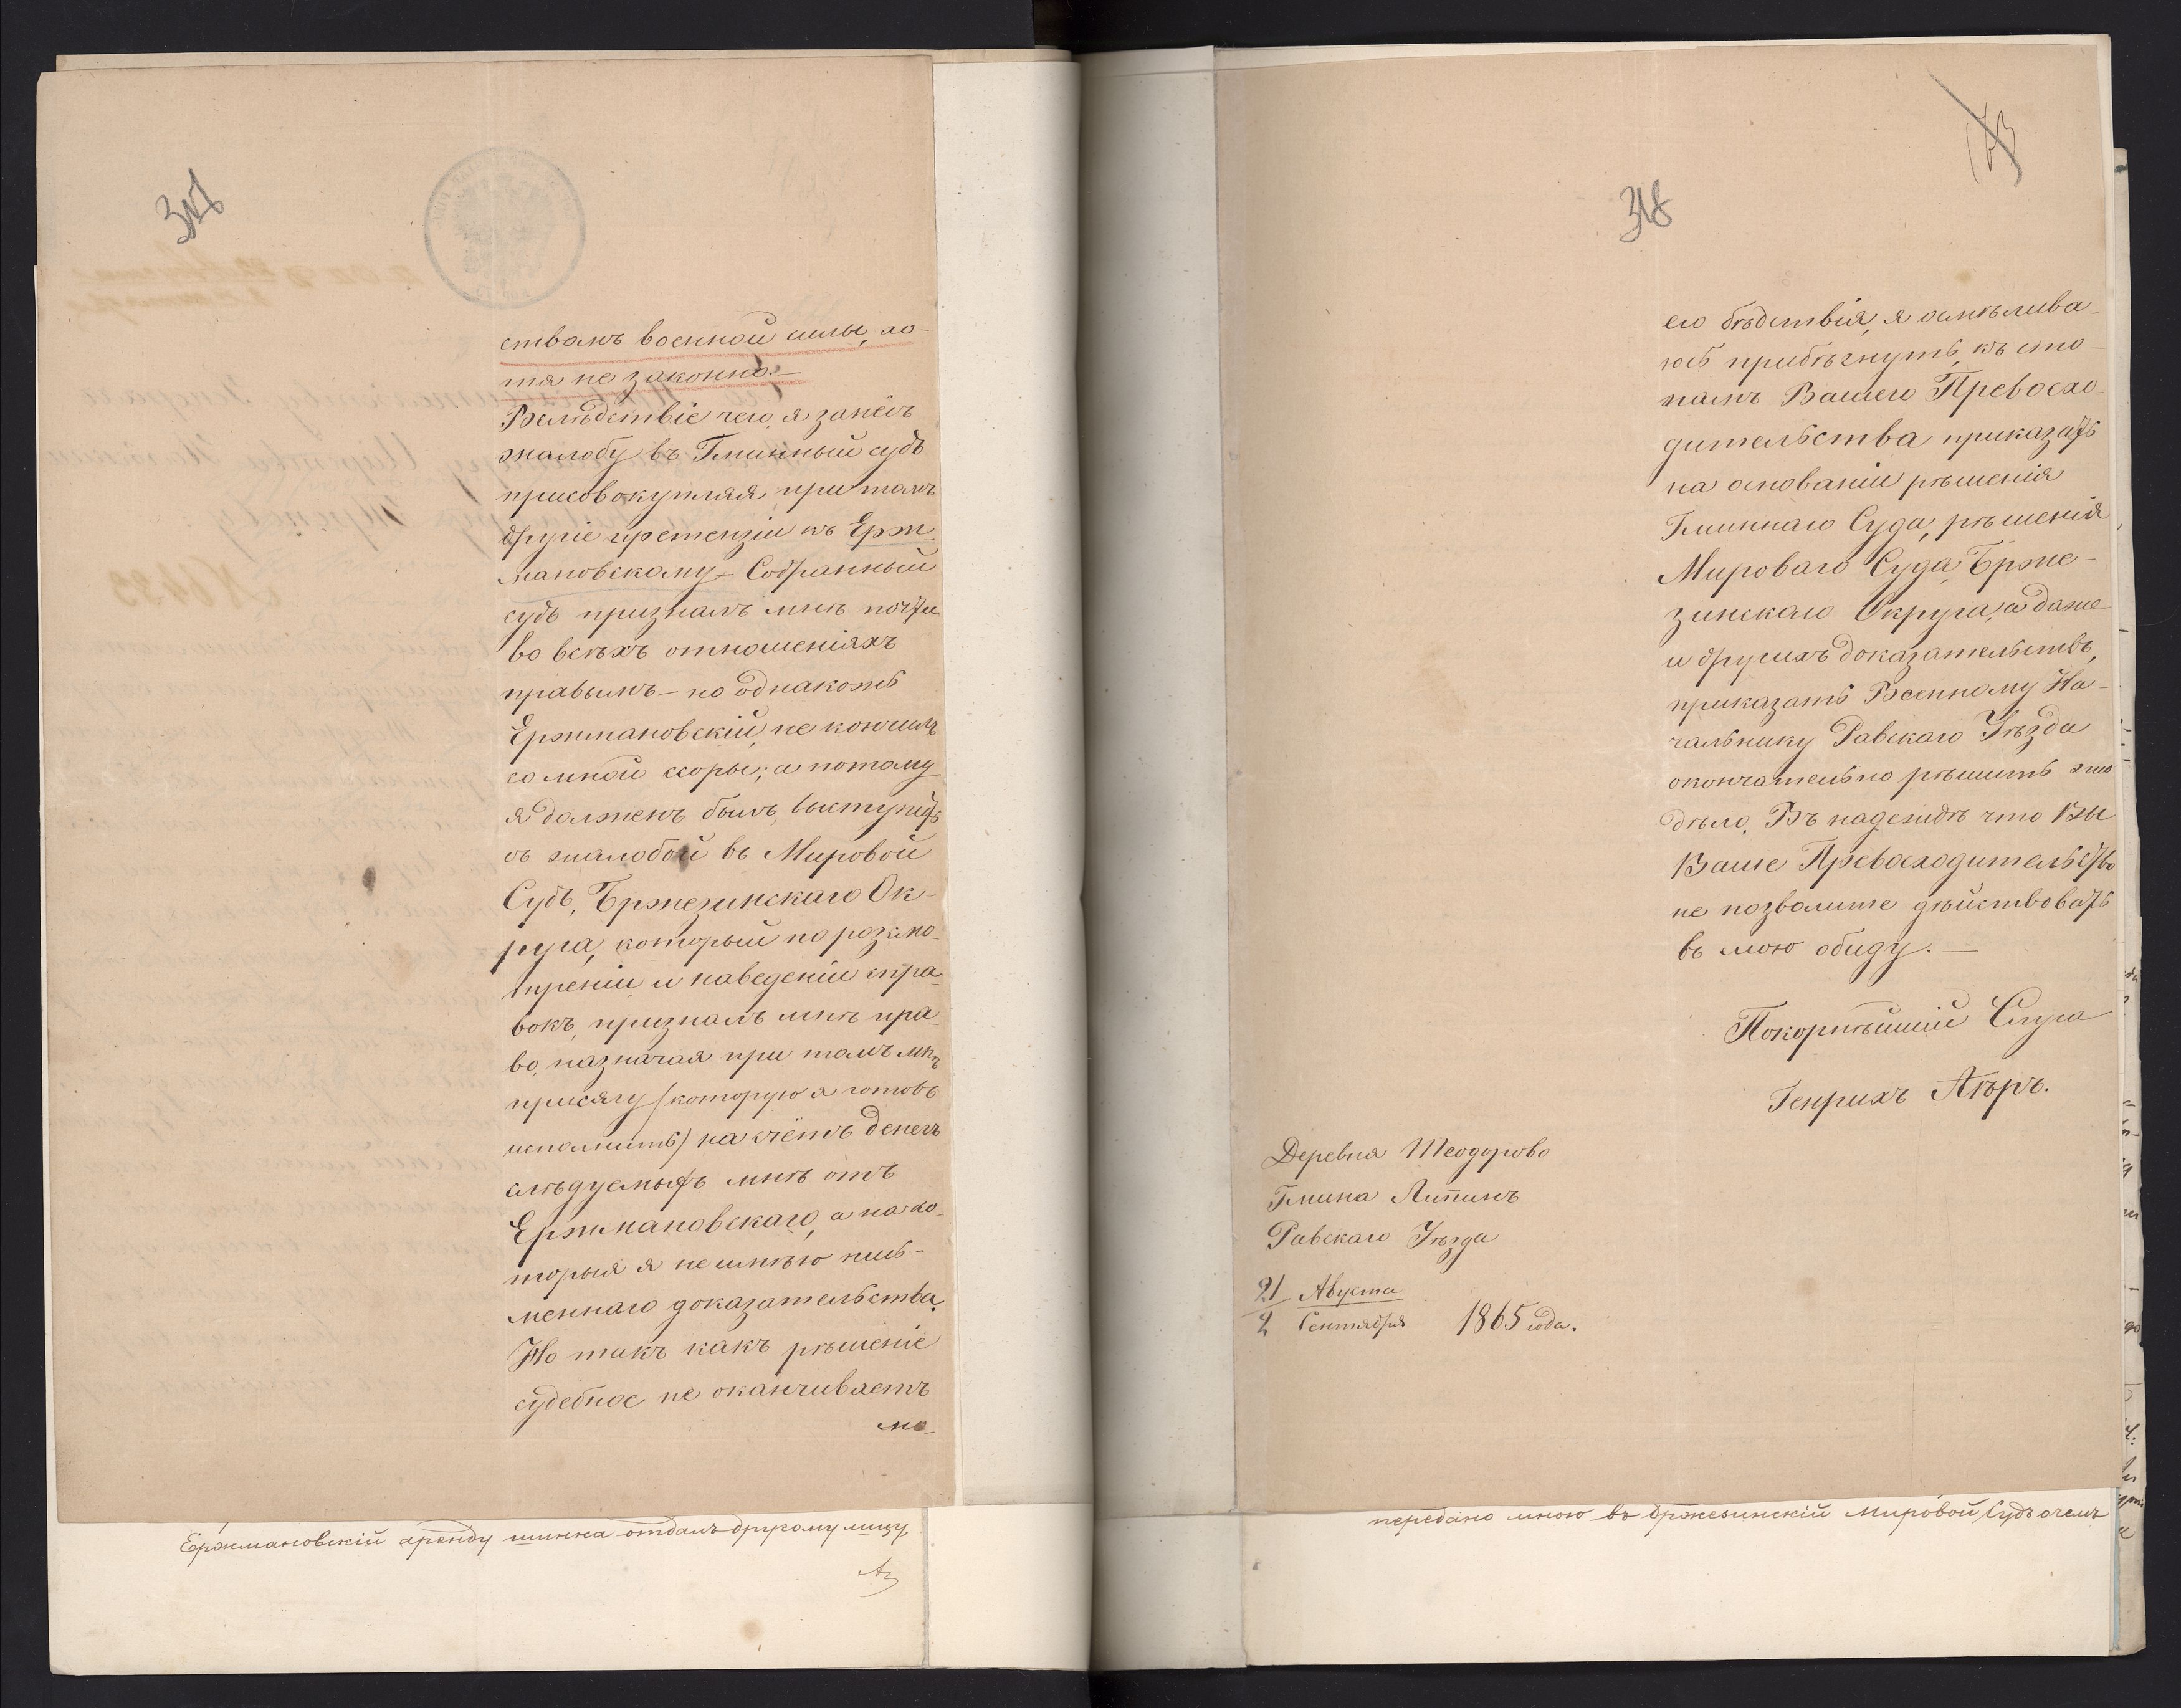 317
ствамъ военной силы, хо-
тя не законно.—
Вслѣдствіе чего, я занёсъ
жалобу въ Гминный судъ
присовокупляя при томъ
другіе претензіи къ Ерж-
мановскому — Собранный
судъ призналъ мнѣ почти
во всѣхъ отношеніяхъ
правымъ — но однакожъ
Ержмановскій, не кончилъ
со мной ссоры; а потому
я долженъ былъ, выступить
съ жалобой въ Мировой
Судъ, Бржезинскаго Ок-
руга, который по розсмо-
трѣніи и наведеніи спра-
вокъ, призналъ мнѣ пра-
во, назначая при томъ мнѣ
присягу (которую я готовъ
исполнить) на счётъ денегъ
слѣдуемыхъ мнѣ отъ
Ержмановскаго, а на ко-
торыя я не имѣю пись-
меннаго доказательства.
Но такъ какъ рѣшеніе
судебное не оканчиваетъ
мо-
Ержмановскій аренду шинка отдалъ другому лицу,
318
его бѣдствія, я осмѣлива-
юсь прибѣгнуть, къ сто-
памъ Вашего Превосхо-
дительства приказать
на основаніи рѣшенія
Гминнаго Суда, рѣшенія
Мироваго Суда, Брже-
зинскаго Округа, а даже
и другихъ доказательствъ,
приказать Военному На-
чальнику Равскаго Уѣзда
окончательно рѣшить это
дѣло. Въ надеждѣ что Вы
Ваше Превосходительство
не позволите дѣйствовать
въ мою обиду. —
Покорнѣйшій Слуга
Генрихъ
Деревня Теодорово
Гмина Липинъ
Равскаго Уѣзда
21 Августа
2 Сентября 1865 года.
передано мною въ Бржезинскій Мировой Судъ о чемъ